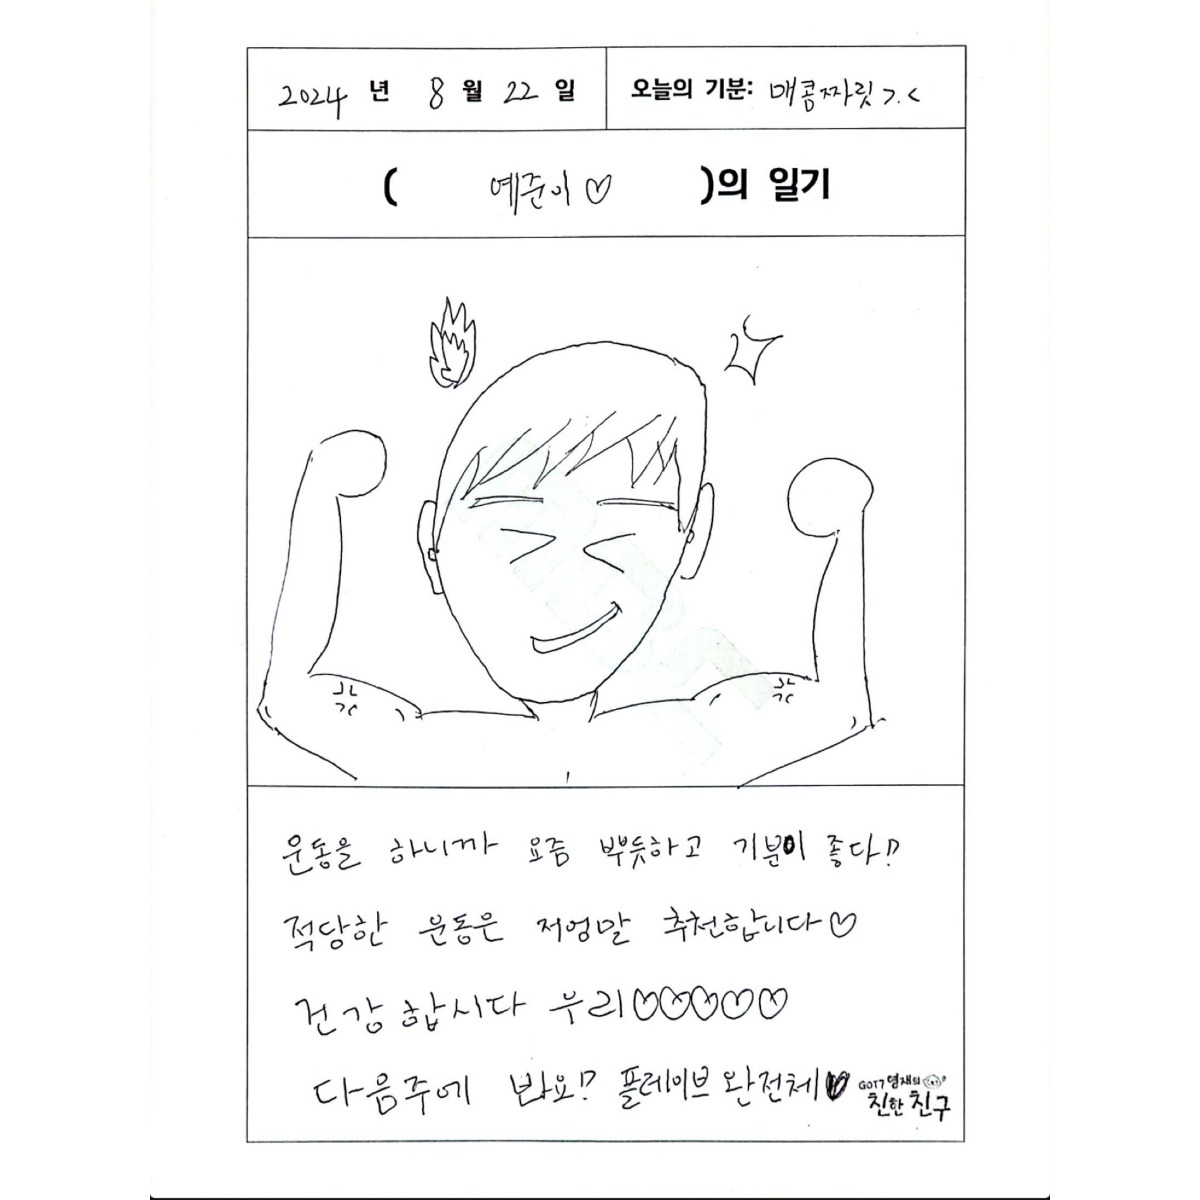 2024 년 8 월 22 일 오늘의 기분: 매콤짜릿 >.<
( 예준이♡ )의 일기
운동을 하니까 요즘 뿌듯하고 기분이 좋다!?
적당한 운동은 저엉말 추천합니다♡
건강합시다 우리♡♡♡♡♡
다음주에 봐요!? 플레이브 완전체♥
GOT7 영재의
친한 친구